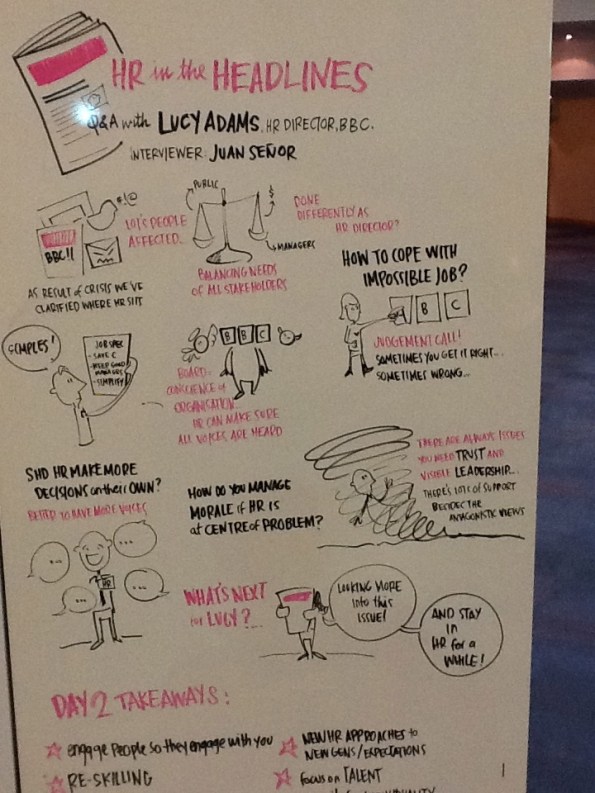 HR in the HEADLINES
Q&A with LUCY ADAMS, HR DIRECTOR, BBC.
INTERVIEWER: JUAN SEÑOR
*!@
BBC!!
LOT'S PEOPLE
AFFECTED...
AS RESULT of CRISIS WE'VE
CLARIFIED WHERE HR SITS
PUBLIC
$
MANAGERS
BALANCING NEEDS
OF ALL STAKEHOLDERS
DONE
DIFFERENTLY AS
HR DIRECTOR?
HOW TO COPE WITH
IMPOSSIBLE JOB?
B C
JUDGEMENT CALL!
SOMETIMES YOU GET IT RIGHT...
SOMETIMES WRONG...
SIMPLES!
JOB SPEC
- KEEP GOOD
MANAGERS
- SIMPLIFY
B B C
BOARD:
CONSCIENCE of
ORGANISATION...
HR CAN MAKE SURE
ALL VOICES ARE HEARD
SHD HR MAKE MORE
DECISIONS on their OWN?
BETTER TO HAVE MORE VOICES
...
...
...
...
HR
HOW DO YOU MANAGE
MORALE if HR IS
at CENTRE of PROBLEM?
THERE ARE ALWAYS ISSUES
YOU NEED TRUST AND
VISIBLE LEADERSHIP...
THERE'S LOTS of SUPPORT
BESIDES THE
ANTAGONISTIC VIEWS
WHAT'S NEXT
for LUCY?...
LOOKING MORE
into this
ISSUE!
AND STAY
in
HR for a
WHILE!
DAY 2 TAKEAWAYS:
engage PEOPLE so they engage with you
RE-SKILLING
NEW HR APPROACHES to
NEW GENS/EXPECTATIONS
focus on TALENT